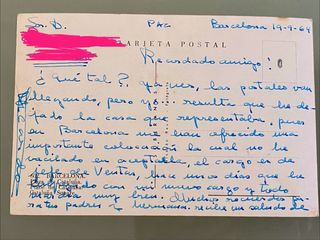 Sr. D. PAG Barcelona 19-9-64
TARJETA POSTAL
Recordado amigo:
¿Qué tal?. ya ves, las postales van
llegando, pero resulta que he de-
jado la casa que representaba, pues
en Barcelona me han ofrecido una
importante colocación la cual no he
vacilado en aceptarla, el cargo es de
Jefe de Ventas, hace unos días que he
empezado con mi nuevo cargo y todo
marcha muy bien. Muchos recuerdos pa-
ra tus padres y hermana. recibe un saludo de
BARCELONA